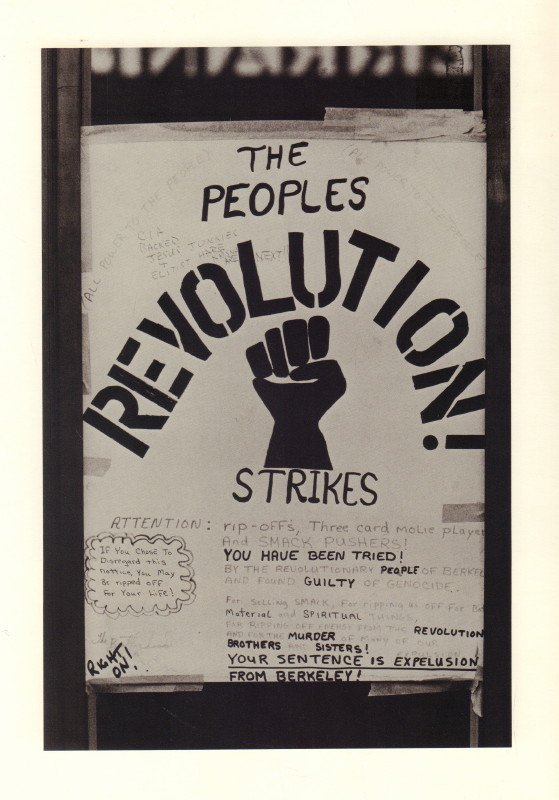 THE
PEOPLES
(ALL POWER TO THE PEOPLE)
(ALL POWER TO THE
CIA
BACKED
JESUS JUNKIES
ELITIST HARE
NEXT!
REVOLUTION!
STRIKES
ATTENTION: rip-offs, Three card molie playe
And SMACK PUSHERS!
YOU HAVE BEEN TRIED!
BY THE REVOLUTIONARY PEOPLE OF BERKEL
AND FOUND GUILTY OF GENOCIDE.
If You Chose To
Disregard this
nottice, You May
Be ripped off
For Your Life!
For SELLING SMACK, For ripping us OFF For
Material and SPIRITUAL THINGS,
FOR RIPPING OFF ENERGY FROM THE REVOLUTION
AND FOR THE MURDER OF MANY OF OUR
BROTHERS AND SISTERS!
YOUR SENTENCE IS EXPELUSION
FROM BERKELEY!
RIGHT
ON!